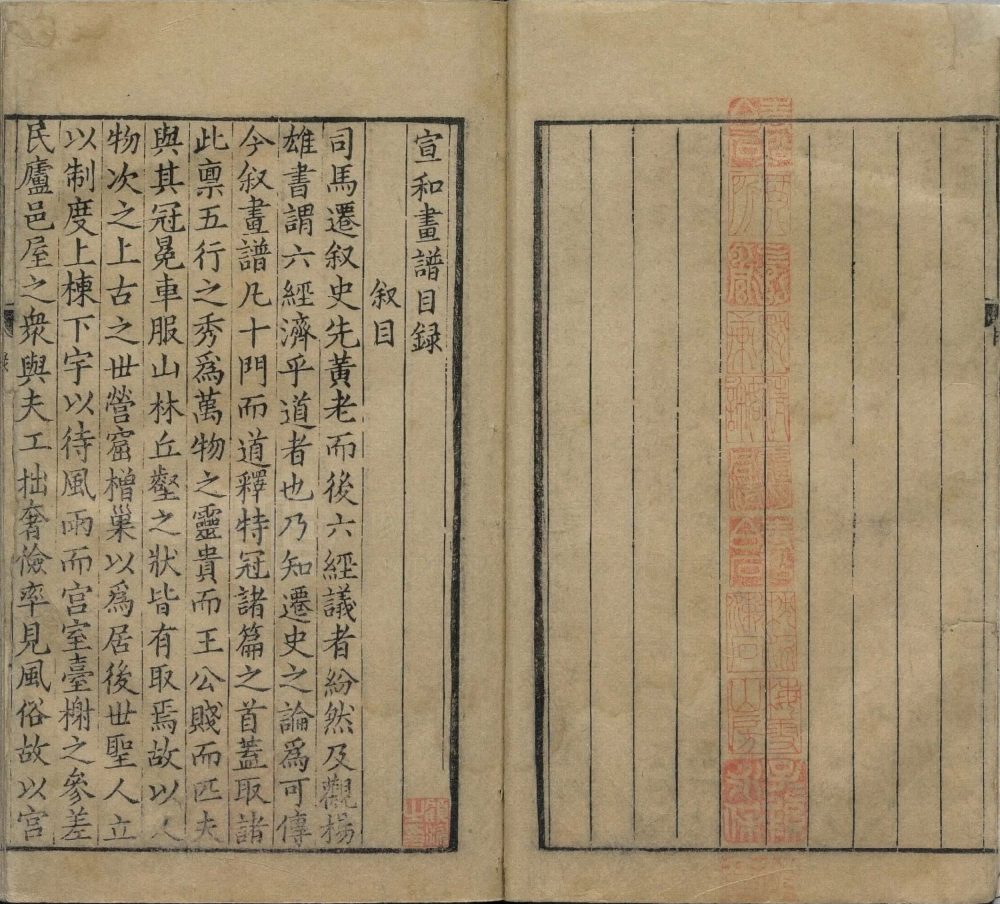 宣和畫譜目錄
叙目
司馬遷叙史先黃老而後六經議者紛然及觀楊
雄書謂六經濟乎道者也乃知遷史之論爲可傳
今叙畫譜凡十門而道釋特冠諸篇之首蓋取諸
此禀五行之秀爲萬物之靈貴而王公賤而匹夫
與其冠冕車服山林丘壑之狀皆有取焉故以人
物次之上古之世營窟橧巢以爲居後世聖人立
以制度上棟下宇以待風雨而宫室臺榭之參差
民廬邑屋之衆與夫工拙奢儉率見風俗故以宫